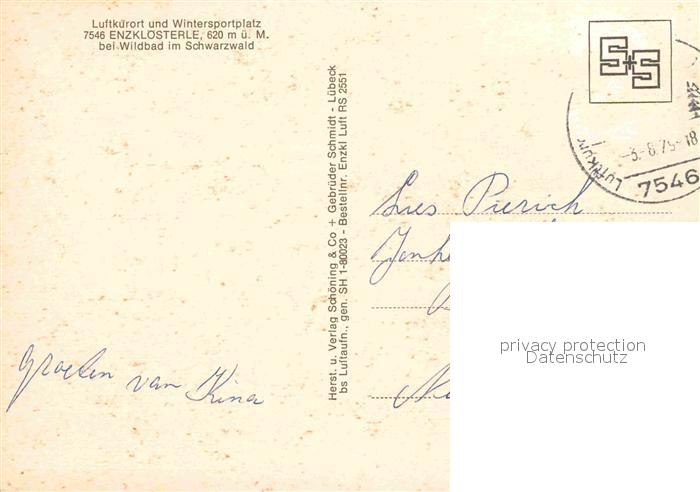 Luftkurort und Wintersportplatz
7546 ENZKLÖSTERLE, 620 m ü. M.
bei Wildbad im Schwarzwald
Groeten van Kina
Herst. u. Verlag Schöning & Co + Gebrüder Schmidt - Lübeck
bs Luftaufn., gen. SH 1-80023 - Bestellnr. Enzkl Luft RS 2551
S+S
-3.-8.75-18
Luftkur
7546
privacy protection
Datenschutz